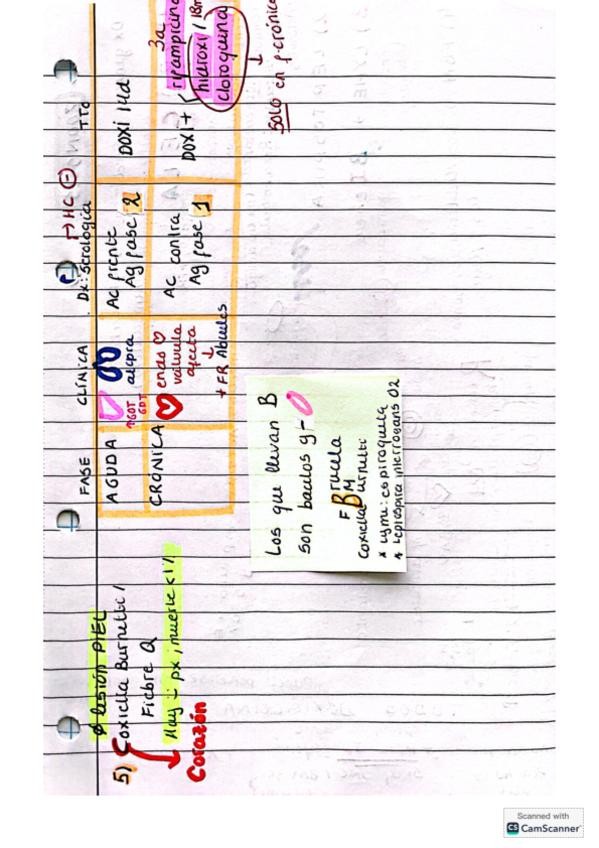 Ø lesión PIEL
5) Coxiella Burnetti /
Fiebre Q
Hay :) px, muerte <1%
Corazón
FASE CLÍNICA Dx: Serología → HC ⊖ TTO
AGUDA ↑GOT GPT atípica AC frente Ag fase 2 DOXI 14d
CRÓNICA endo válvula aórta + FR Abueles AC contra Ag fase 1 DOXI + 3a rifampicina hidroxi / 18m cloroquina
↓
SOLO en f. crónica
Los que llevan B
son bacilos g-
Brucela
F B M
Coxiella Burnetti
* Lyme: espiroqueta
* Leptospira interrogans O2
Scanned with
CS CamScanner